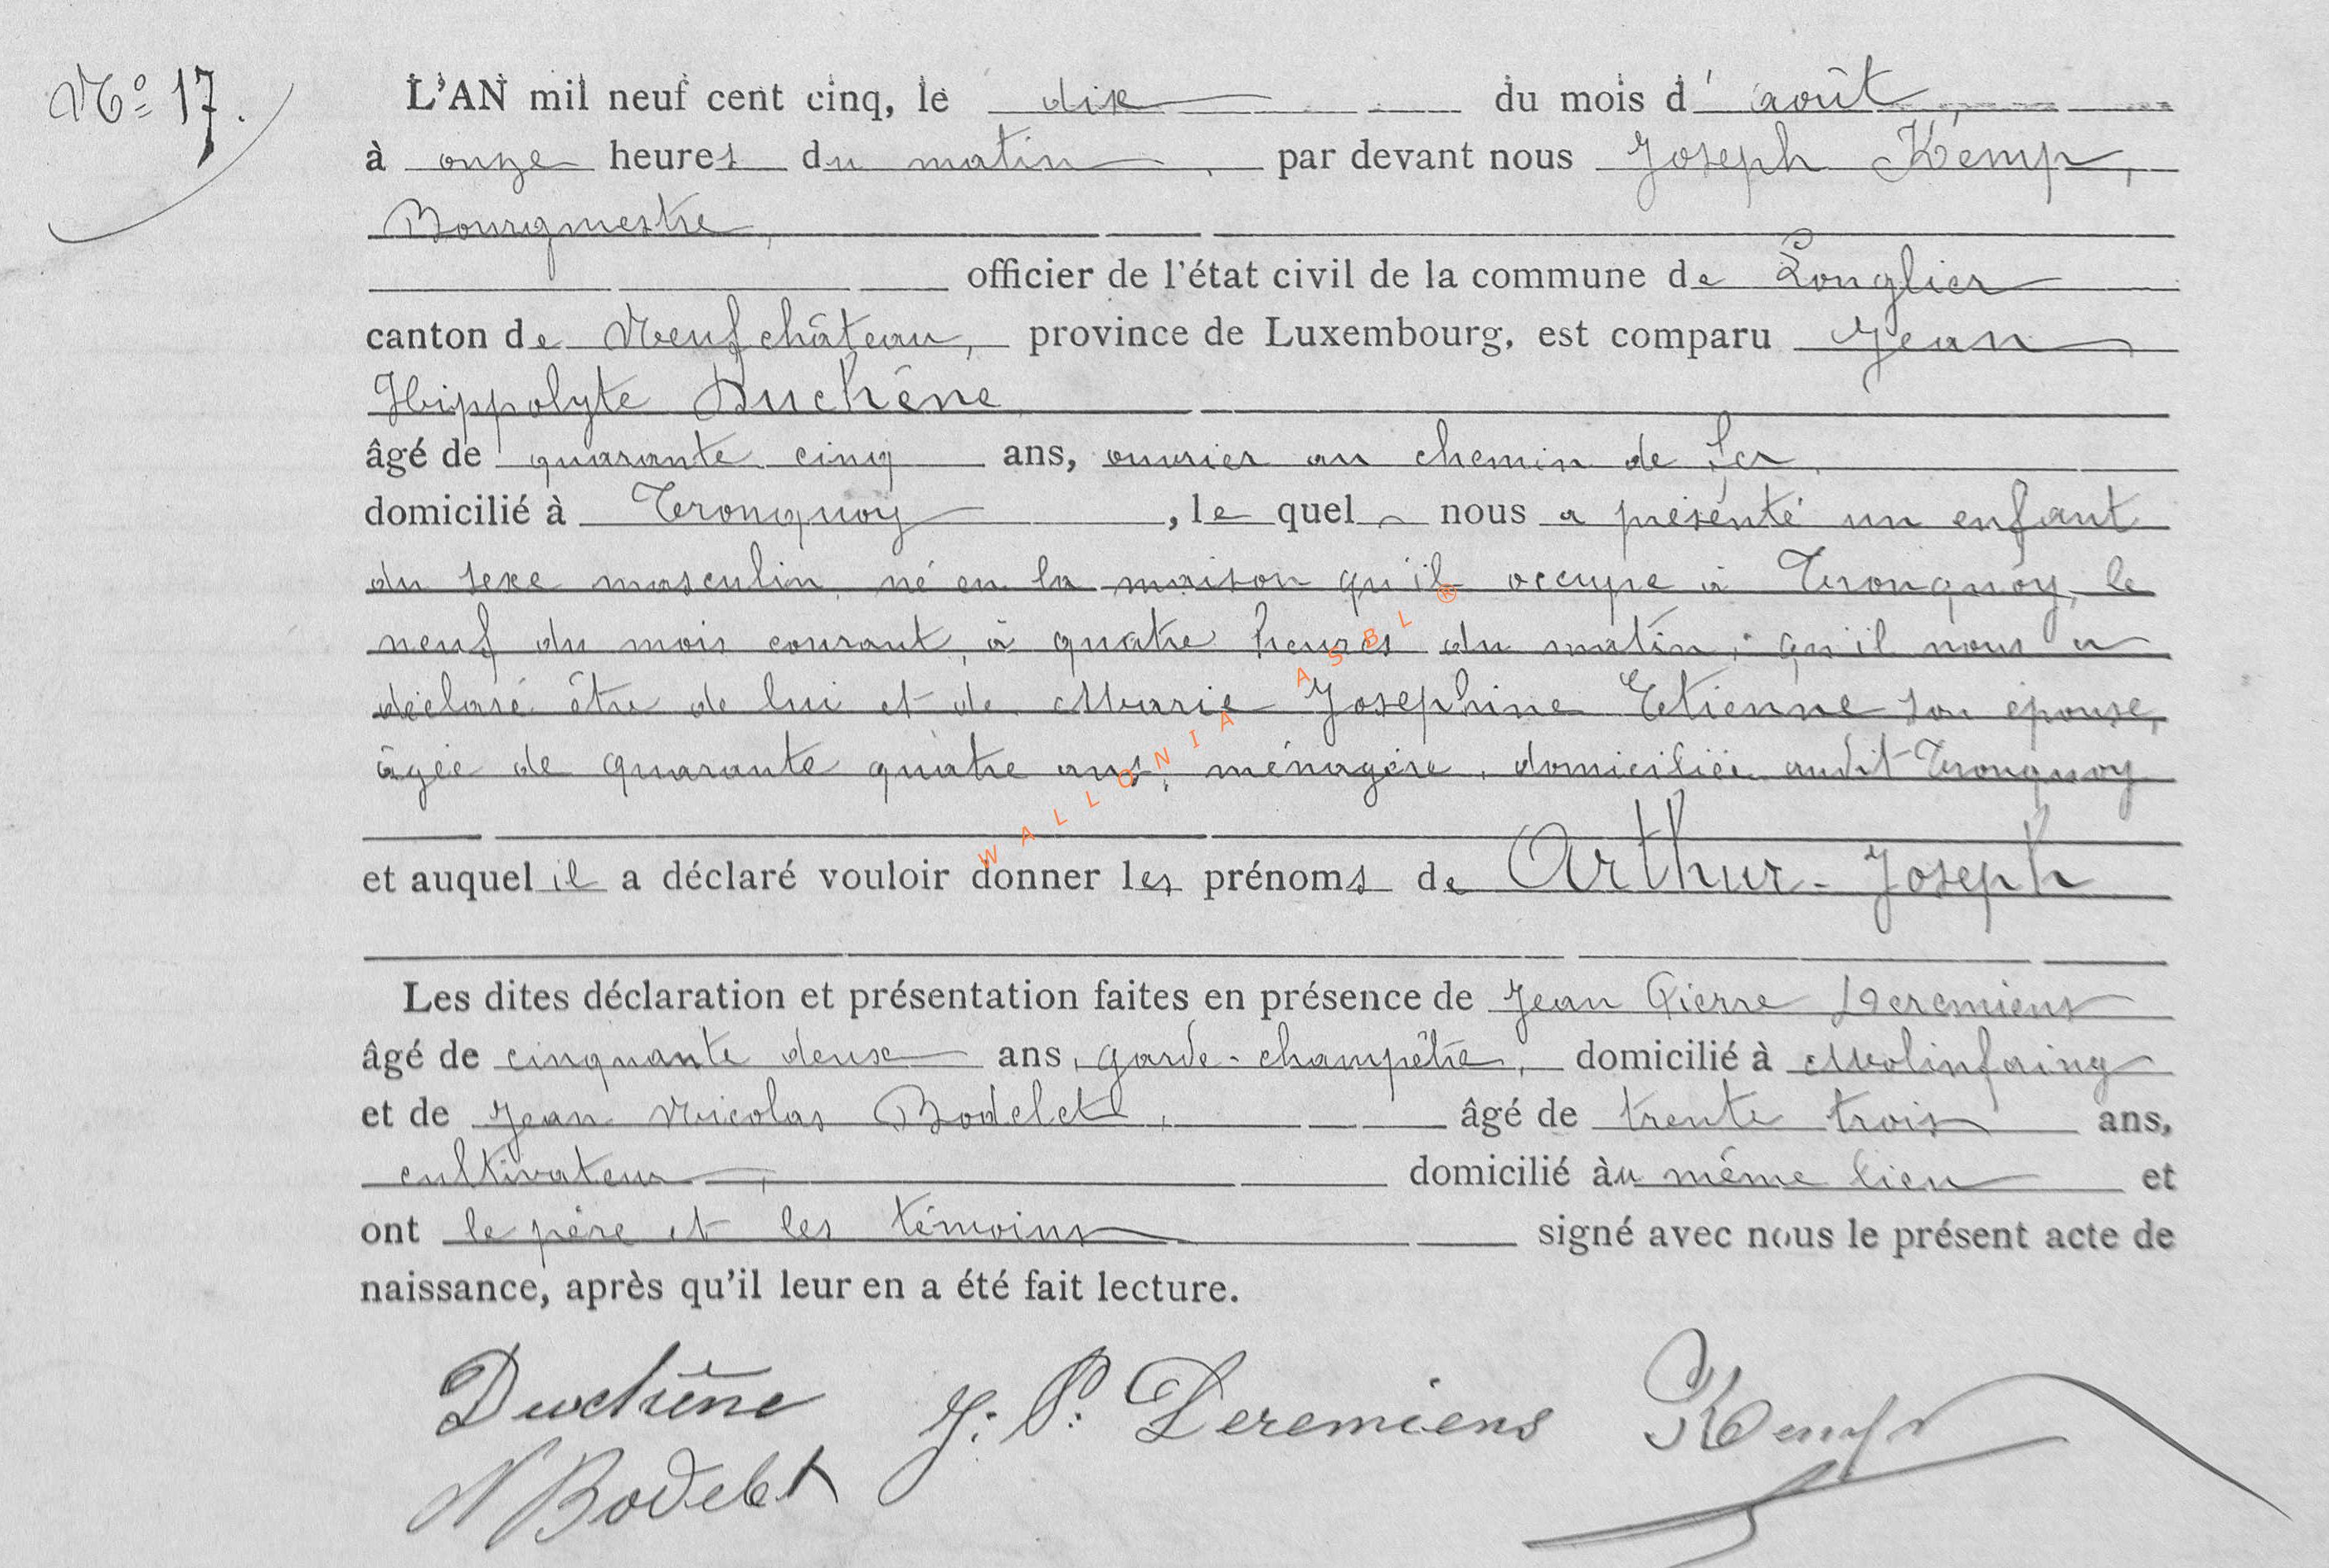 N° 17.
L'AN mil neuf cent cinq, le dix du mois d'août,
à onze heures du matin, par devant nous Joseph Kemp,
Bourgmestre,
officier de l'état civil de la commune de Longlier
canton de Neufchâteau, province de Luxembourg, est comparu Jean
Hippolyte Duchêne
âgé de quarante cinq ans, ouvrier au chemin de fer,
domicilié à Tronquoy, le quel nous a présenté un enfant
du sexe masculin, né en la maison qu'il occupe à Tronquoy, le
neuf du mois courant, à quatre heures du matin, qu'il nous a
déclaré être de lui et de Marie Josephine Etienne son épouse,
âgée de quarante quatre ans, ménagère, domiciliée audit Tronquoy
et auquel il a déclaré vouloir donner les prénoms de Arthur-Joseph
Les dites déclaration et présentation faites en présence de Jean Pierre Deremiens
âgé de cinquante deux ans, garde-champêtre, domicilié à Molinfaing
et de Jean Nicolas Bodelet, âgé de trente trois ans,
cultivateur, domicilié àu même lieu et
ont le père et les témoins signé avec nous le présent acte de
naissance, après qu'il leur en a été fait lecture.
Duchêne J. P. Deremiens Kemp
N Bodelet
WALLONIA ASBL ®